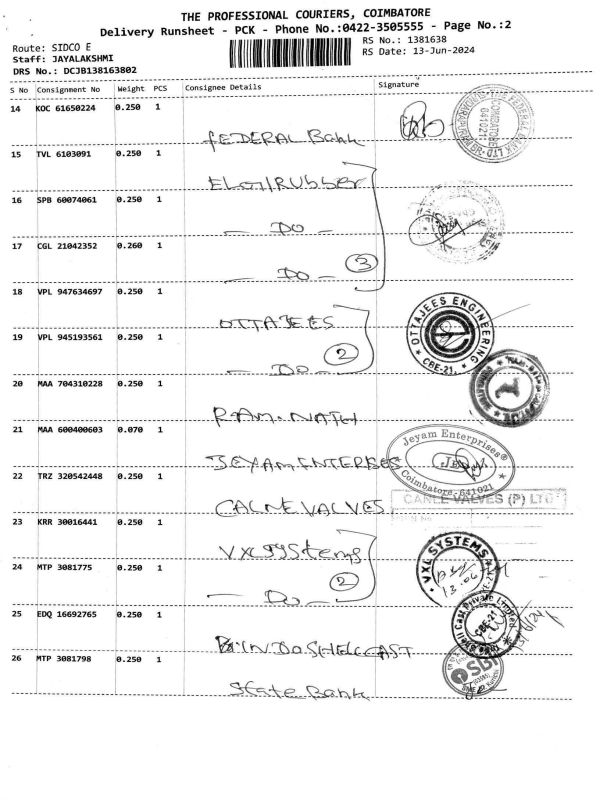 THE PROFESSIONAL COURIERS, COIMBATORE
Delivery Runsheet - PCK - Phone No.:0422-3505555 - Page No.:2
Route: SIDCO E
RS No.: 1381638
Staff: JAYALAKSHMI
RS Date: 13-Jun-2024
DRS No.: DCJB138163802
S No Consignment No Weight PCS Consignee Details Signature
14 KOC 61650224 0.250 1
FEDERAL Bank
FEDERAL BANK LTD
COIMBATORE
641021
15 TVL 6103091 0.250 1
ELGI RUBBER
16 SPB 60074061 0.250 1
— DO —
17 CGL 21042352 0.260 1
— DO — 3
18 VPL 947634697 0.250 1
OTTAJEES
OTTAJEES ENGINEERING
CBE-21.
19 VPL 945193561 0.250 1
— DO — 2
20 MAA 704310228 0.250 1
RAM.NATH
21 MAA 600400603 0.070 1
JEYAM ENTERPISES
Jeyam Enterprises®
Coimbatore-641021
22 TRZ 320542448 0.250 1
CALNE VALVES
CARLE VALVES (P) LTD
23 KRR 30016441 0.250 1
VXL SYStems
VXL SYSTEMS
24 MTP 3081775 0.250 1
— DO — 2
13.06
25 EDQ 16692765 0.250 1
INDOSHELL CAST
Shell Cast Private Limited
CBE-21
26 MTP 3081798 0.250 1
State Bank
SBI